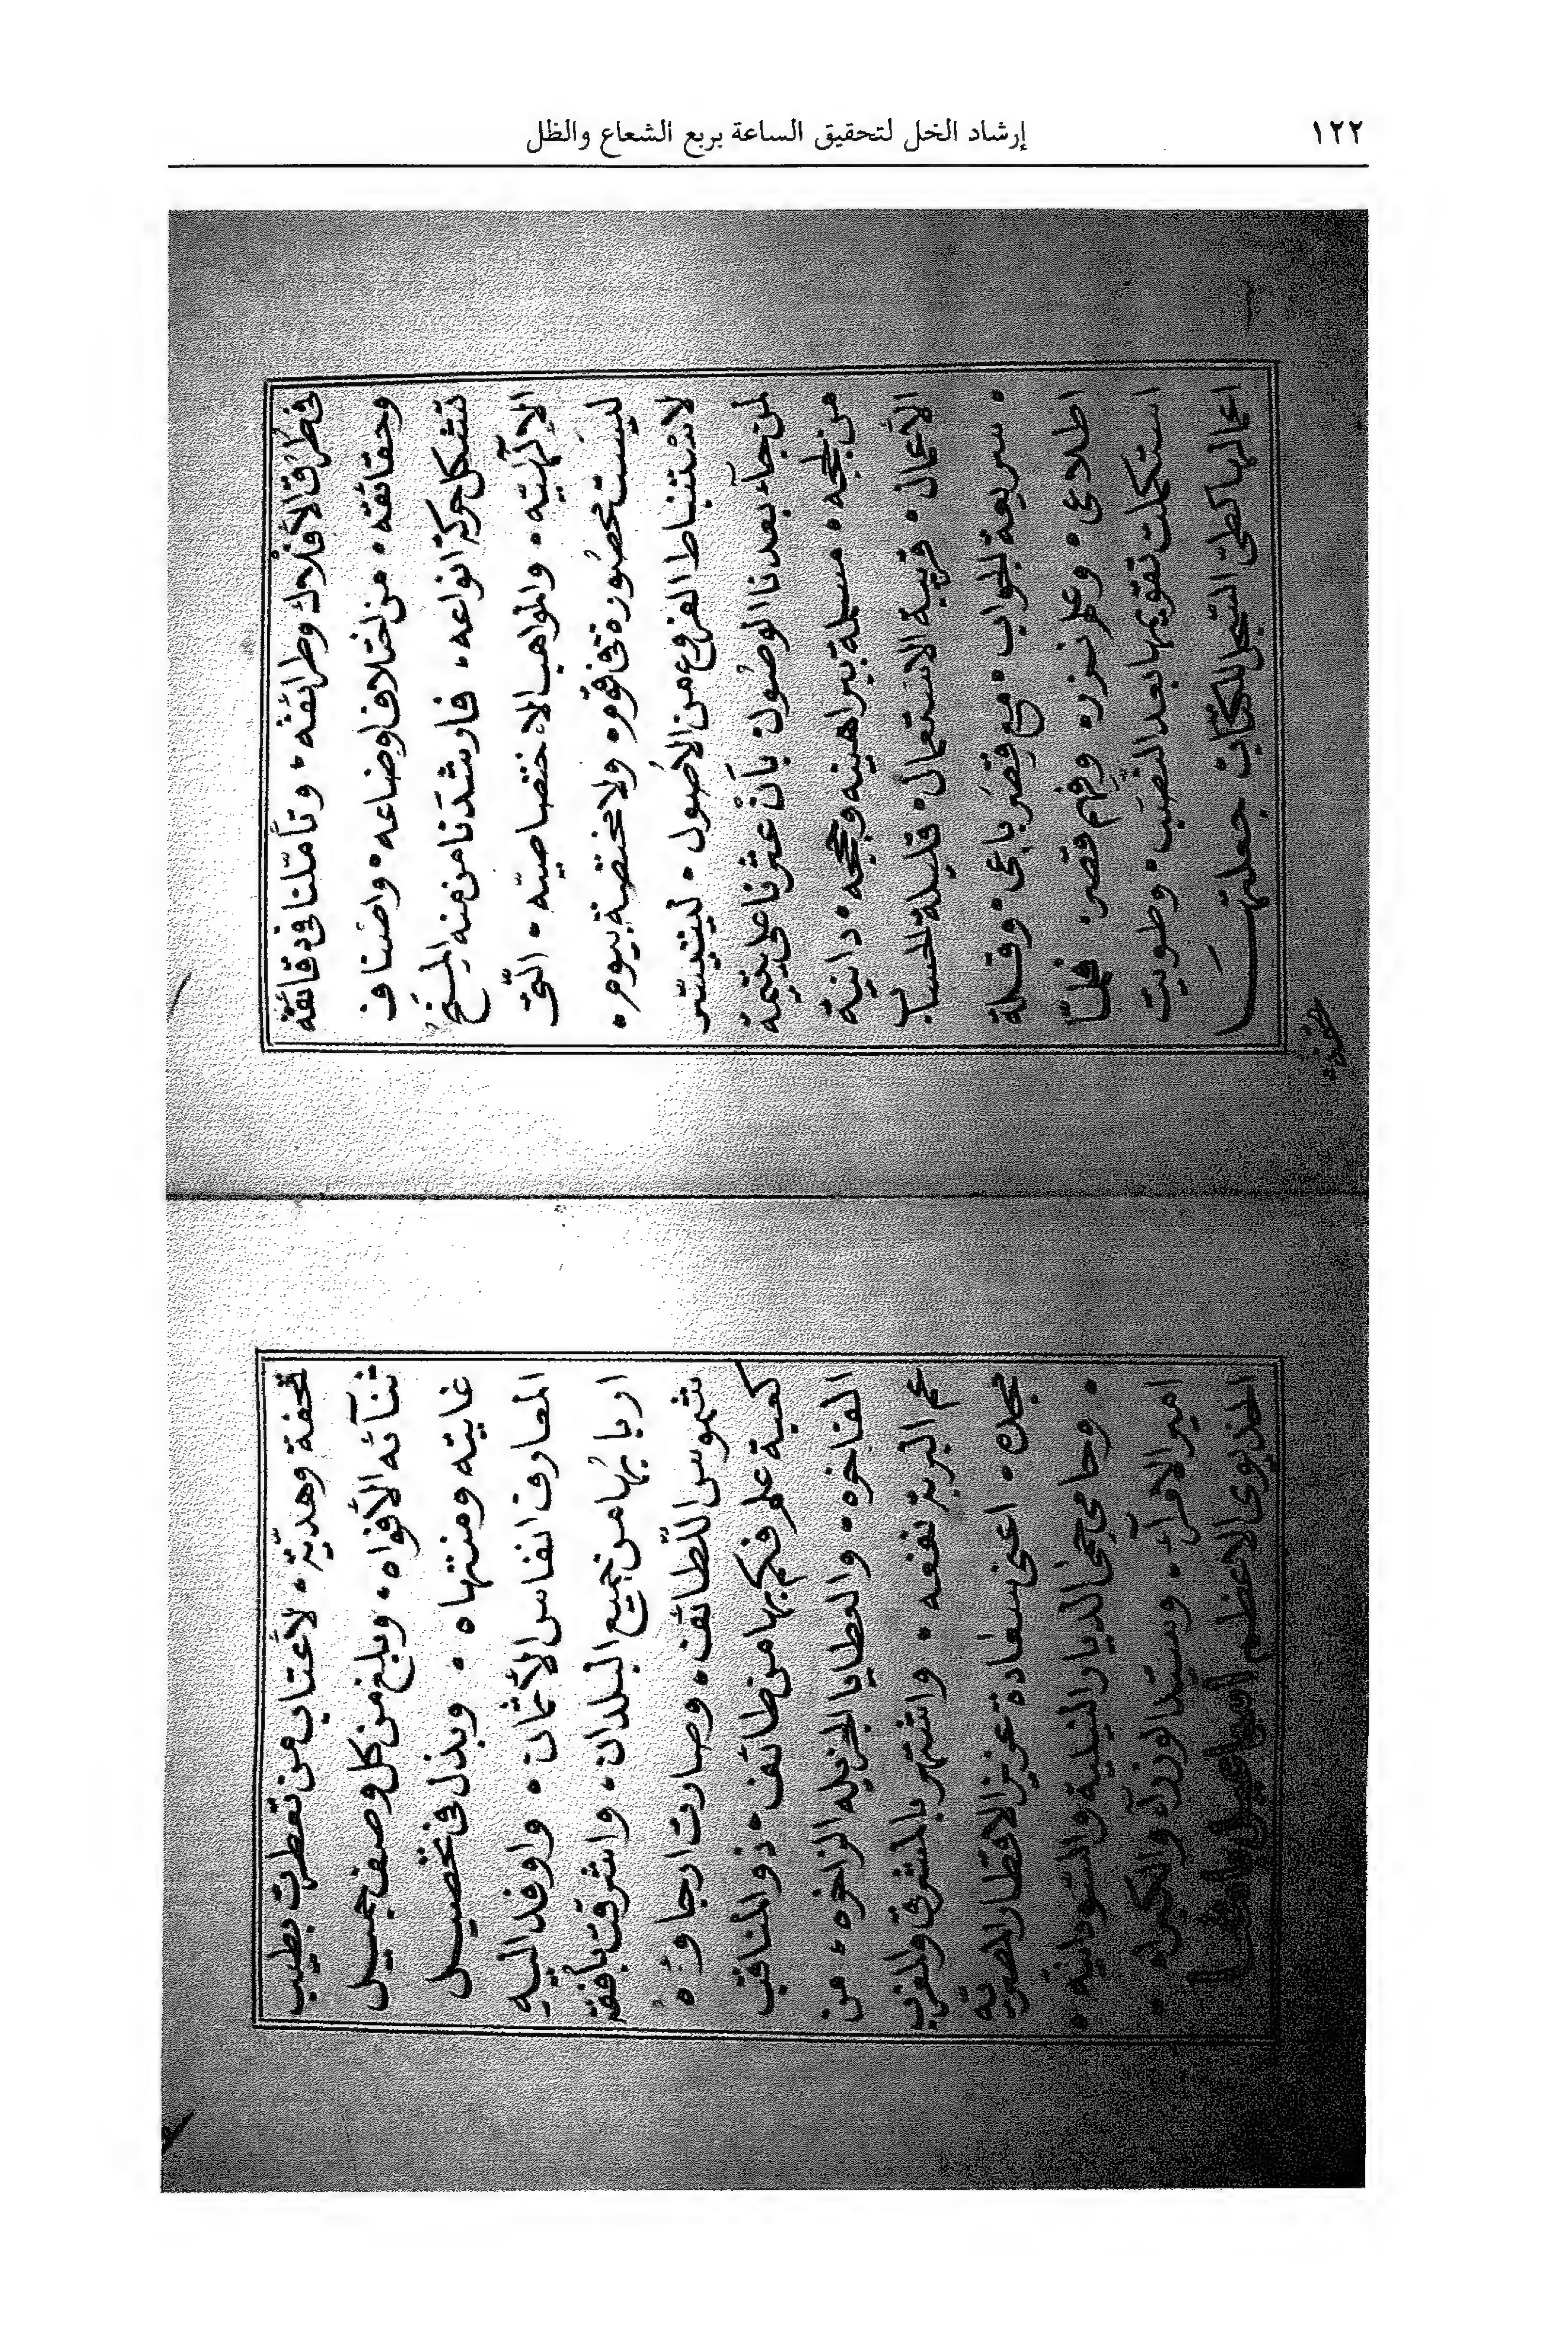 إرشاد الخل لتحقيق الساعة بربع الشعاع والظل
١٢٢
فى طرق الأفلاك وطرائقه • وتأملنا فى دقائقه
وحقائقه • من اختلاف اوضاعه • واصناف
تشكل حركة انواعه • فارشدتنا من منه المنح
الإلهيّه • والمواهب الاختصاصيّه • الّتى
ليست محصورة فى قوم • ولا مختصة بيوم •
لاستنباط الفروع من الأصول • ليتيسّر
لمن جآء بعدنا الوصول • بأن عثرنا على يتيمة
من لججه • مسهلة ببراهينه وحججه • دانية
الأعمال • قريبة الاستعمال • قليلة الحساب
• سريعة الجواب • مع قصر باعى • وقلة
اطلاعى • وعلم نزر • وفهم قصر • فلمّا
استكملت تقويمها بعد النّصَب • وطويت
اعمالها كطىّ السّجلّ للكتاب جعلتها
تحفة
تحفة وهديّة • لأعتاب من تعطرت بطيب
ثنآئه الأفواه • وبلغ من كل وصف جميل
غايته ومنتهاه • وبذل فى تحصيل
المعارف انفاس الأثمان • واوفد اليه
اربابها من جميع البلدان • واشرقت بأفقه
شموس اللّطائف • وصارت ارجاؤه
كعبة علم فكم بها من طائف • ذو المناقب
الفاخره • والعطايا الجزيله الزاخره • من
عم البرية نفعه • واشتهر بالمشرق والمغرب
مجده • اعنى سعادة عزيز الاقطار المصريّه
• وحامى حمى الديار النيلية والسّودانيّه •
امير الامرآء • وسيّد الوزرآء والكبراء •
الخديوى الاعظم اسماعيل باشا